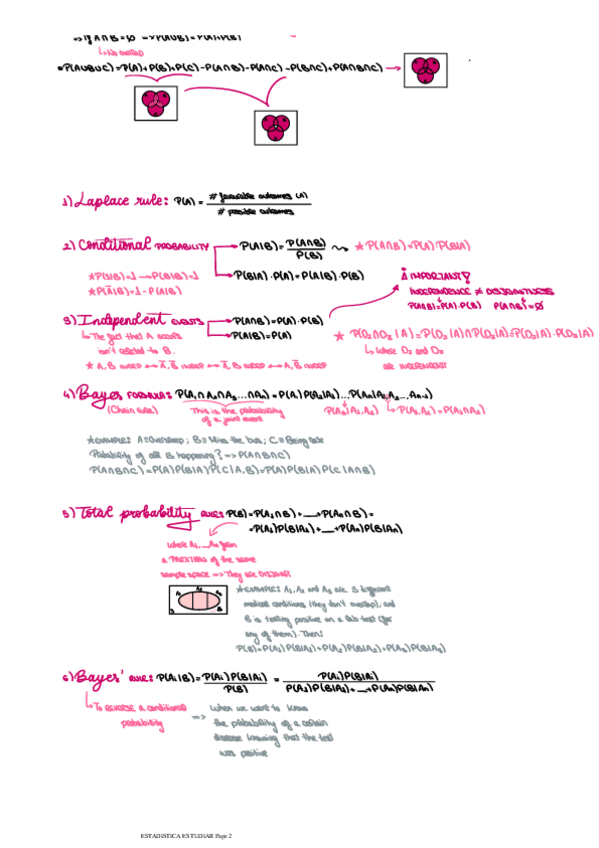 => If A∩B=∅ => P(A∪B)=P(A)+P(B)
↳ No overlap
P(A∪B∪C)=P(A)+P(B)+P(C)-P(A∩B)-P(A∩C)-P(B∩C)+P(A∩B∩C) →
1) Laplace rule: P(A) = # favorable outcomes (A) / # possible outcomes
2) Conditional PROBABILITY → P(A|B) = P(A∩B) / P(B) ★ P(A∩B)=P(A)·P(B|A)
→ P(B|A)·P(A)=P(A|B)·P(B)
★ P(Ā|B)=1-P(A|B)
IMPORTANT!
INDEPENDENCE ≠ DISJOINTNESS
P(A∩B)=P(A)·P(B) P(A∩B)=∅
3) Independent EVENTS → P(A∩B)=P(A)·P(B)
→ P(A|B)=P(A)
↳ The fact that A occurs
isn't related to B.
★ P(D₁∩D₂|A)=P(D₁|A)∩P(D₂|A)=P(D₁|A)·P(D₂|A)
↳ where D₁ and D₂
are INDEPENDENT
★ A, B INDEP ↔ Ā, B INDEP ↔ Ā, B̄ INDEP ↔ A, B̄ INDEP
4) Bayes FORMULA: P(A₁∩A₂∩A₃...∩Aₙ)=P(A₁)P(A₂|A₁)...P(Aₙ|A₁,A₂...,Aₙ₋₁)
(Chain rule) This is the probability
of a joint event
P(A₃|A₁,A₂) ↳ P(A₁,A₂)=P(A₁∩A₂)
★ EXAMPLE: A=Oversleep; B=Miss the bus; C=Being late
Probability of all 3 happening? => P(A∩B∩C)
P(A∩B∩C)=P(A)P(B|A)P(C|A,B)=P(A)P(B|A)P(C|A∩B)
5) Total probability RULE: P(B)=P(A₁∩B)+...+P(Aₙ∩B)=
=P(A₁)P(B|A₁)+...+P(Aₙ)P(B|Aₙ)
where A₁,...Aₙ form
a PARTITION of the same
sample space => They are DISJOINT
★ EXAMPLE: A₁, A₂ and A₃ are 3 different
medical conditions (they don't overlap), and
B is testing positive on a lab test (for
any of them). Then:
P(B)=P(A₁)P(B|A₁)+P(A₂)P(B|A₂)+P(A₃)P(B|A₃)
6) Bayes' RULE: P(Aᵢ|B) = P(Aᵢ)P(B|Aᵢ) / P(B) = P(Aᵢ)P(B|Aᵢ) / P(A₁)P(B|A₁)+...+P(Aₙ)P(B|Aₙ)
↳ To REVERSE a conditional
probability
=> When we want to know
the probability of a certain
disease knowing that the test
was positive
ESTADÍSTICA ESTUDIAR Page 2